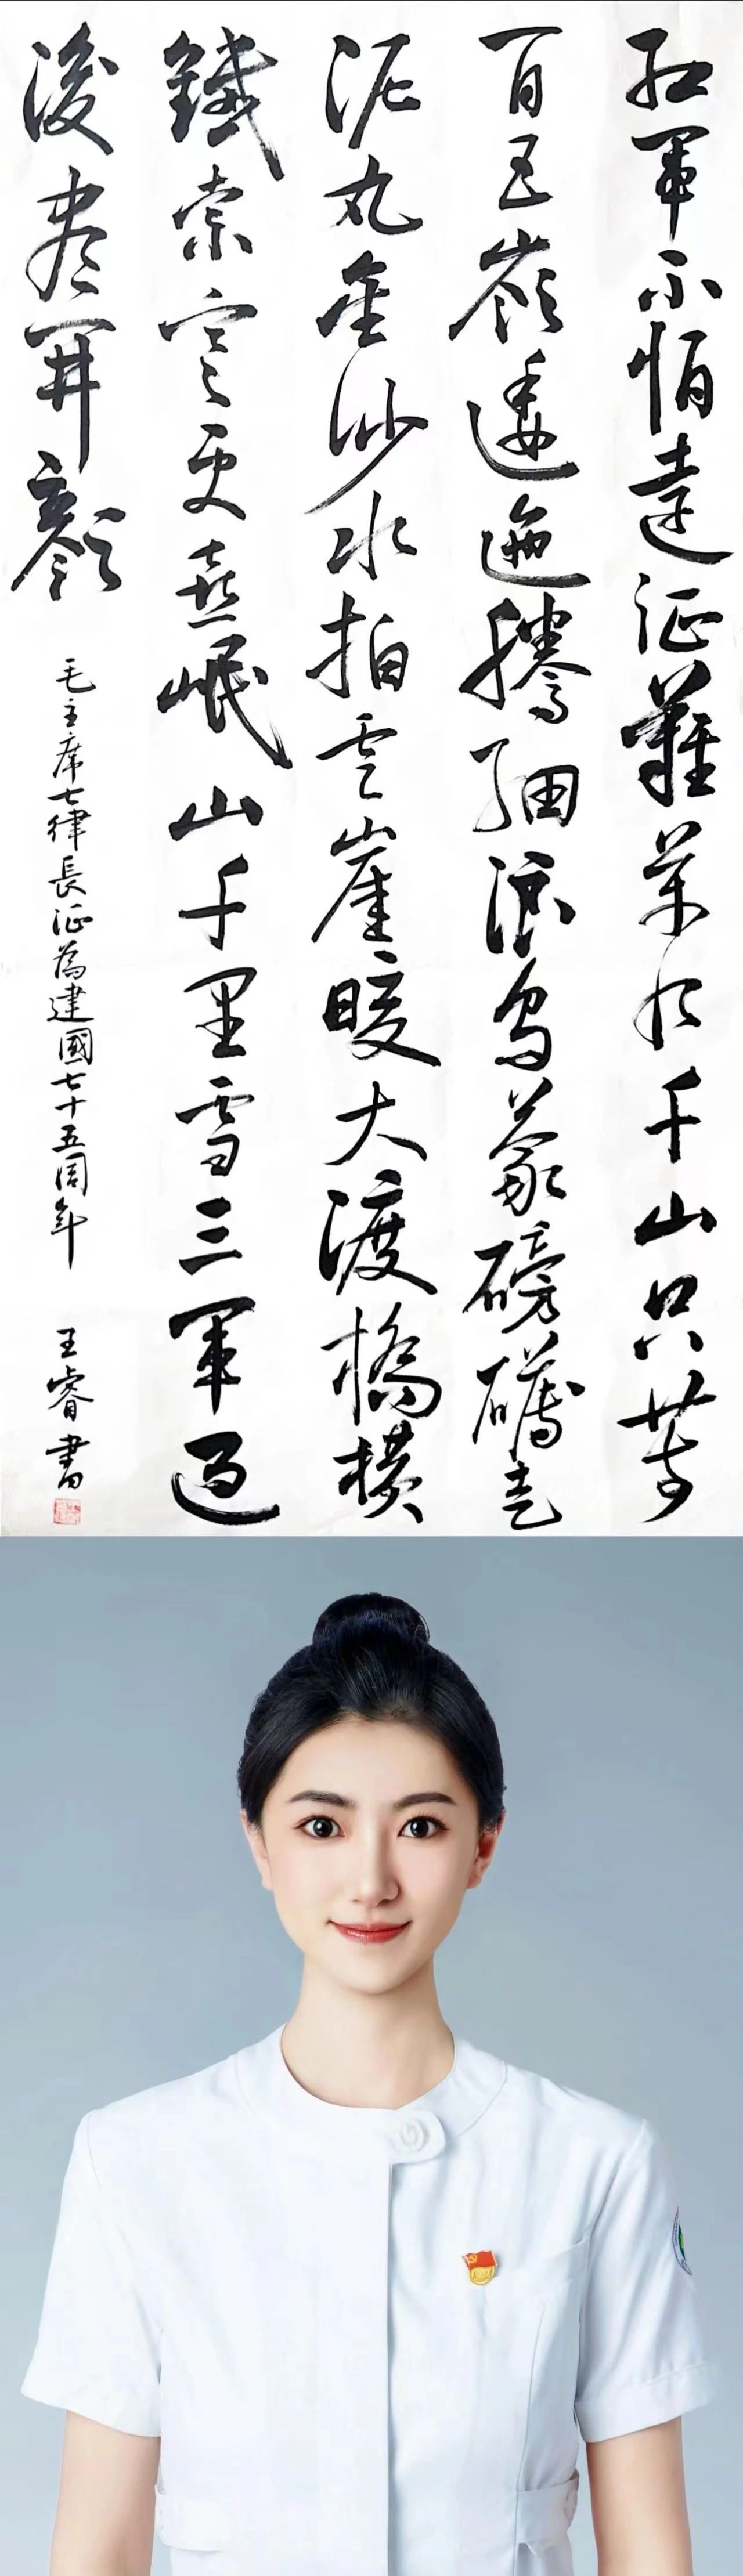 紅軍不怕遠征難萬水千山只等
閒五嶺逶迤騰細浪烏蒙磅礴走
泥丸金沙水拍雲崖暖大渡橋橫
鐵索寒更喜岷山千里雪三軍過
後盡開顏
毛主席七律長征為建國七十五周年
王睿書